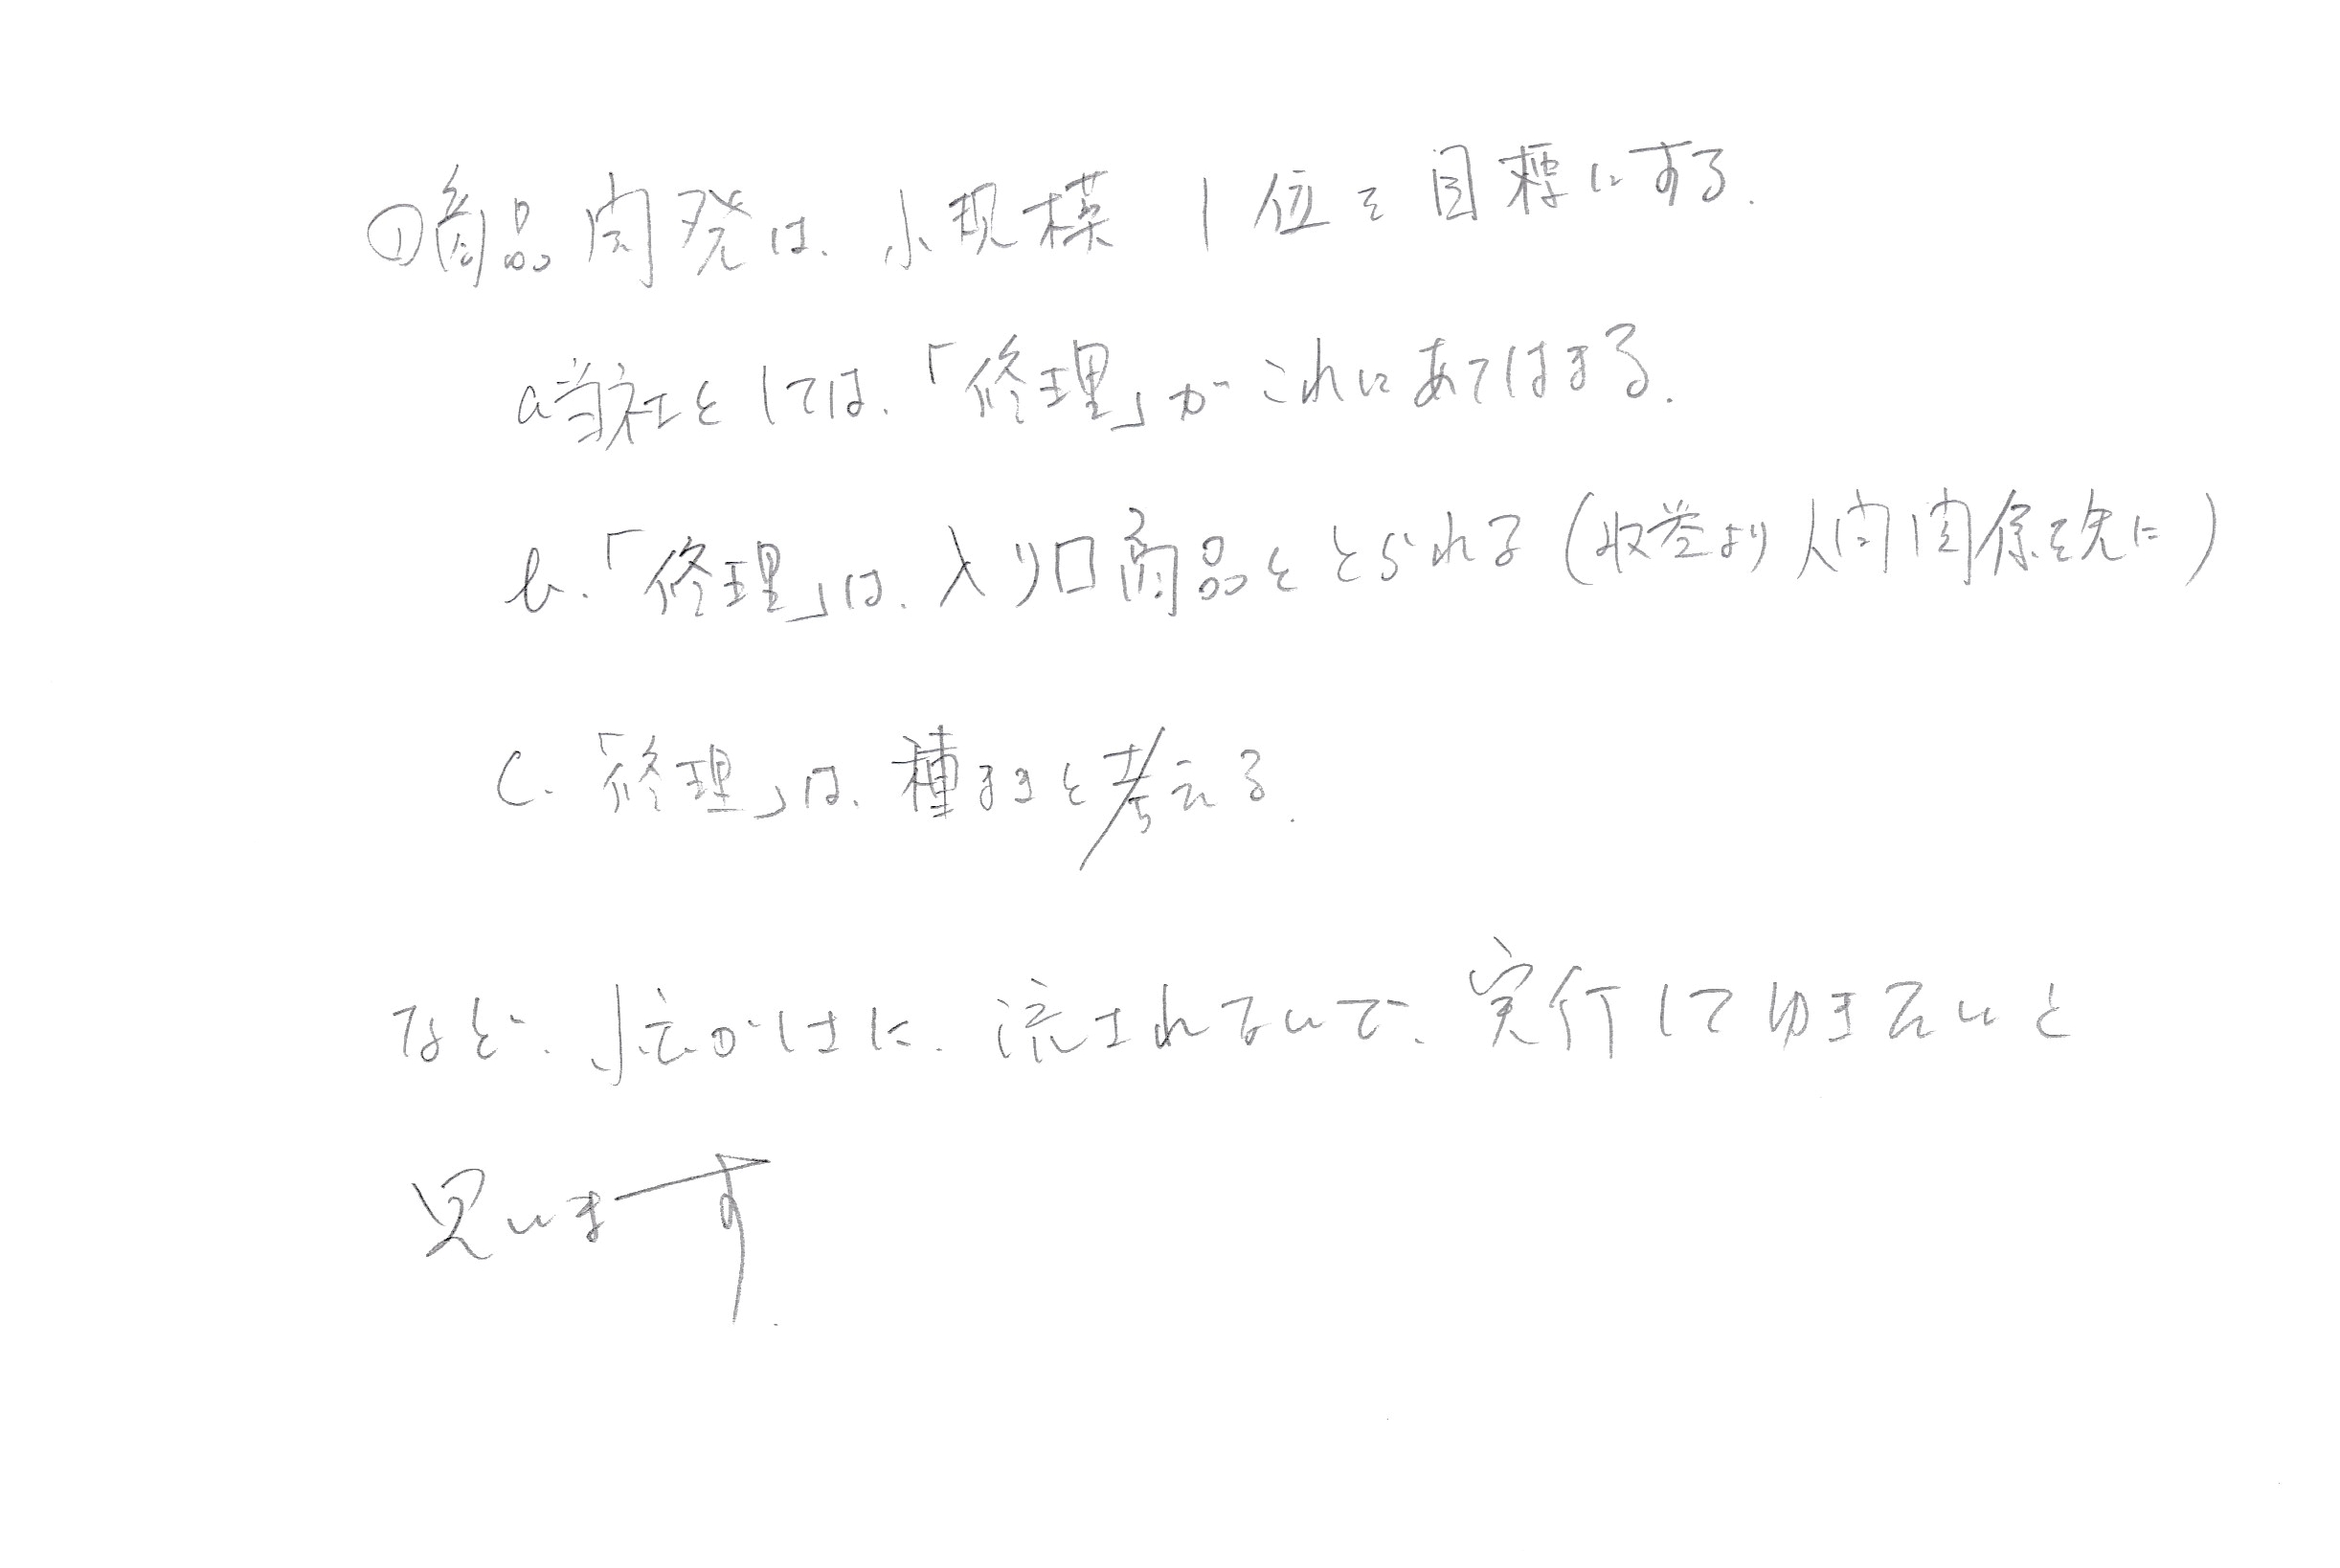 ①商品開発は、小規模1位を目標にする.
a当社としては、「修理」がこれにあてはまる.
b.「修理」は、入り口商品ととられる(収益より人間関係を先に)
c.「修理」は、種まきと考える.
など、流されないで、実行してゆきたいと
思います.